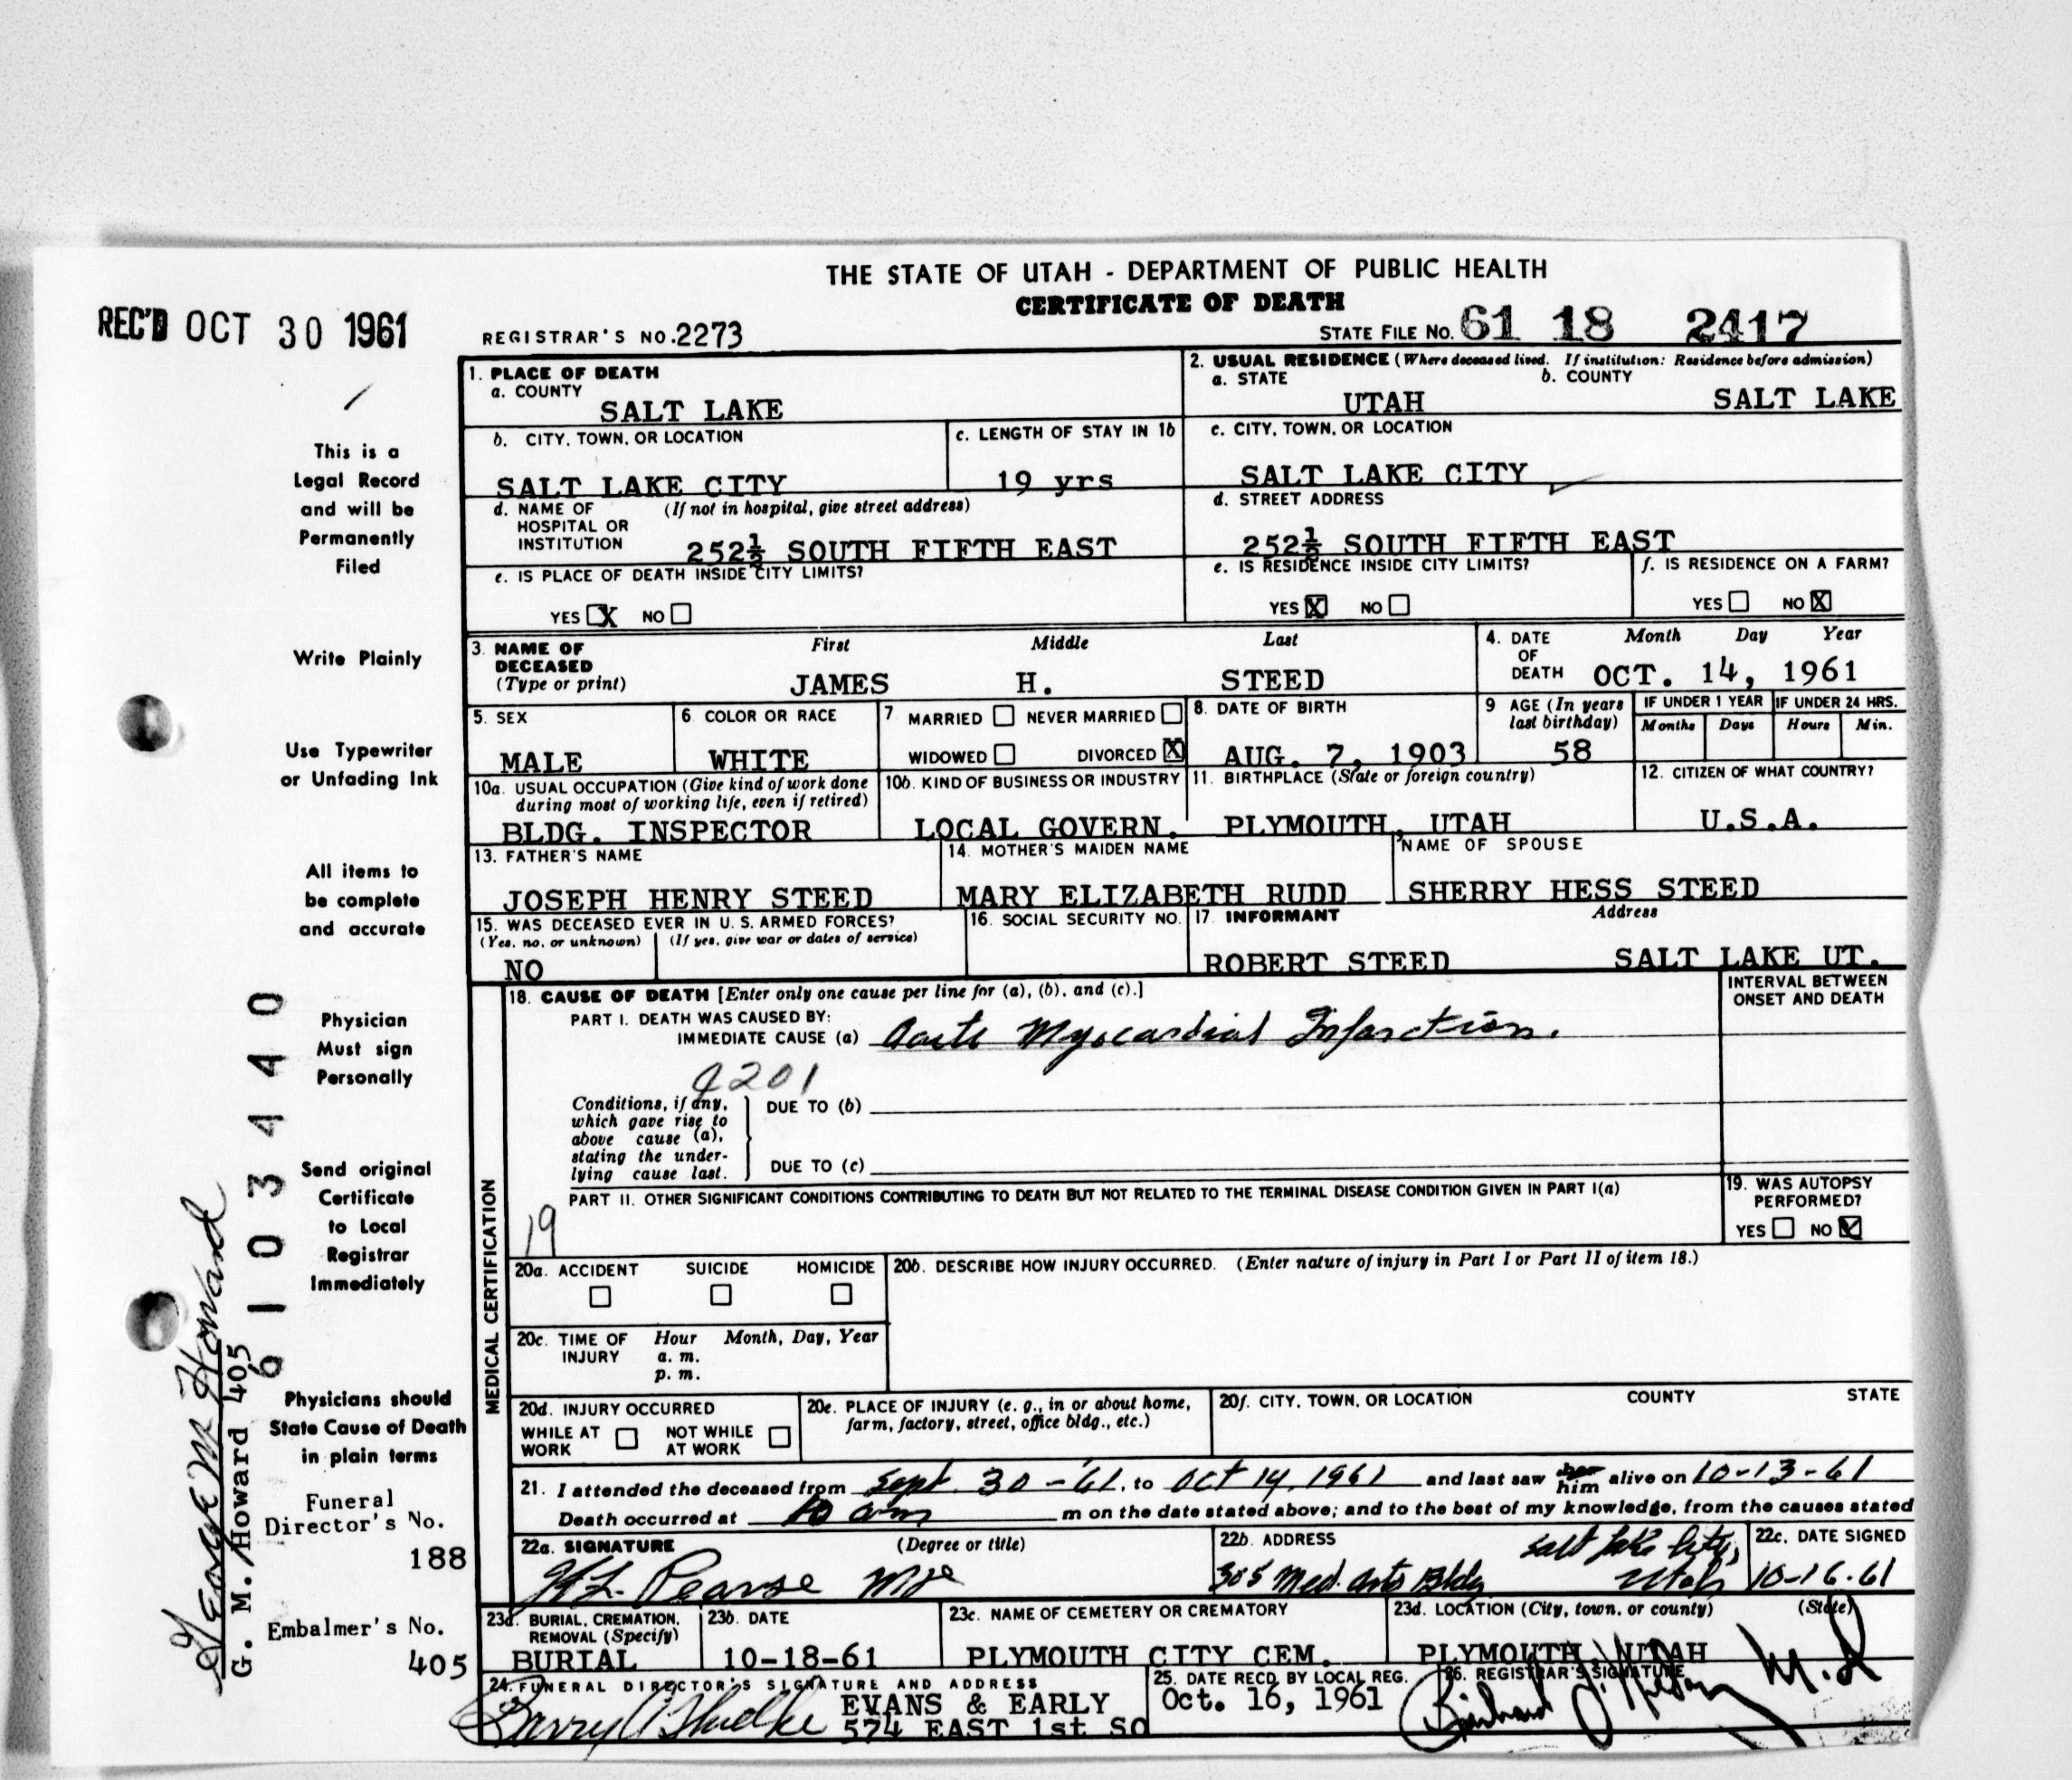 THE STATE OF UTAH - DEPARTMENT OF PUBLIC HEALTH
CERTIFICATE OF DEATH
REC'D OCT 30 1961
REGISTRAR'S NO. 2273
STATE FILE NO. 61 18 2417
1. PLACE OF DEATH
a. COUNTY
SALT LAKE
2. USUAL RESIDENCE (Where deceased lived. If institution: Residence before admission)
a. STATE b. COUNTY
UTAH SALT LAKE
b. CITY, TOWN, OR LOCATION
SALT LAKE CITY
c. LENGTH OF STAY IN 1b
19 yrs
c. CITY, TOWN, OR LOCATION
SALT LAKE CITY
d. NAME OF HOSPITAL OR INSTITUTION (If not in hospital, give street address)
252½ SOUTH FIFTH EAST
d. STREET ADDRESS
252½ SOUTH FIFTH EAST
e. IS PLACE OF DEATH INSIDE CITY LIMITS?
YES X NO
e. IS RESIDENCE INSIDE CITY LIMITS?
YES X NO
f. IS RESIDENCE ON A FARM?
YES NO X
3. NAME OF DECEASED (Type or print)
First Middle Last
JAMES H. STEED
4. DATE OF DEATH
Month Day Year
OCT. 14, 1961
5. SEX
MALE
6. COLOR OR RACE
WHITE
7. MARRIED NEVER MARRIED
WIDOWED DIVORCED X
8. DATE OF BIRTH
AUG. 7, 1903
9 AGE (In years last birthday)
58
IF UNDER 1 YEAR
Months Days
IF UNDER 24 HRS.
Hours Min.
10a. USUAL OCCUPATION (Give kind of work done
during most of working life, even if retired)
BLDG. INSPECTOR
10b. KIND OF BUSINESS OR INDUSTRY
LOCAL GOVERN.
11. BIRTHPLACE (State or foreign country)
PLYMOUTH, UTAH
12. CITIZEN OF WHAT COUNTRY?
U.S.A.
13. FATHER'S NAME
JOSEPH HENRY STEED
14. MOTHER'S MAIDEN NAME
MARY ELIZABETH RUDD
NAME OF SPOUSE
SHERRY HESS STEED
15. WAS DECEASED EVER IN U. S. ARMED FORCES?
(Yes, no, or unknown) (If yes, give war or dates of service)
NO
16. SOCIAL SECURITY NO.
17. INFORMANT Address
ROBERT STEED SALT LAKE UT.
MEDICAL CERTIFICATION
18. CAUSE OF DEATH [Enter only one cause per line for (a), (b), and (c).]
INTERVAL BETWEEN
ONSET AND DEATH
PART I. DEATH WAS CAUSED BY:
IMMEDIATE CAUSE (a) Acute Myocardial Infarction.
4201
Conditions, if any,
which gave rise to
above cause (a),
stating the under-
lying cause last.
DUE TO (b)
DUE TO (c)
PART II. OTHER SIGNIFICANT CONDITIONS CONTRIBUTING TO DEATH BUT NOT RELATED TO THE TERMINAL DISEASE CONDITION GIVEN IN PART I(a)
19
19. WAS AUTOPSY
PERFORMED?
YES NO X
20a. ACCIDENT SUICIDE HOMICIDE
20b. DESCRIBE HOW INJURY OCCURRED. (Enter nature of injury in Part I or Part II of item 18.)
20c. TIME OF INJURY
Hour Month, Day, Year
a. m.
p. m.
20d. INJURY OCCURRED
WHILE AT WORK NOT WHILE AT WORK
20e. PLACE OF INJURY (e. g., in or about home,
farm, factory, street, office bldg., etc.)
20f. CITY, TOWN, OR LOCATION COUNTY STATE
21. I attended the deceased from Sept. 30-'61, to Oct 14, 1961 and last saw her him alive on 10-13-61
Death occurred at 10 am m on the date stated above; and to the best of my knowledge, from the causes stated
22a. SIGNATURE (Degree or title)
Pearse
22b. ADDRESS
305 Med. Arts Bldg Salt Lake City, Utah
22c. DATE SIGNED
10-16-61
23a. BURIAL, CREMATION,
REMOVAL (Specify)
BURIAL
23b. DATE
10-18-61
23c. NAME OF CEMETERY OR CREMATORY
PLYMOUTH CITY CEM.
23d. LOCATION (City, town, or county) (State)
PLYMOUTH, UTAH
24. FUNERAL DIRECTOR'S SIGNATURE AND ADDRESS
EVANS & EARLY
574 EAST 1st SO
25. DATE RECD. BY LOCAL REG.
Oct. 16, 1961
26. REGISTRAR'S SIGNATURE
M.D
This is a
Legal Record
and will be
Permanently
Filed
Write Plainly
Use Typewriter
or Unfading Ink
All items to
be complete
and accurate
Physician
Must sign
Personally
Send original
Certificate
to Local
Registrar
Immediately
Physicians should
State Cause of Death
in plain terms
Funeral
Director's No.
188
Embalmer's No.
405
6103440
George M Howard
G. M. Howard 405